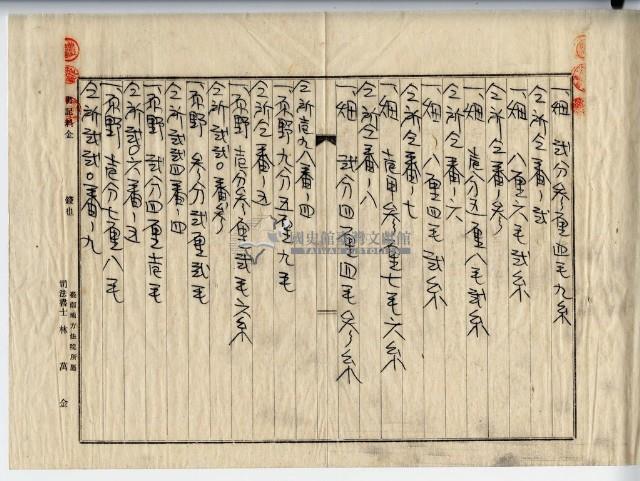 一、畑　弍分参厘四毛九糸
仝所仝番ノ弍
一、畑　八厘六毛弍糸
仝所仝番ノ参
一、畑　壱分五厘八毛弍糸
仝所仝番ノ六
一、畑　八厘四毛弍糸
仝所仝番ノ七
一、畑　壱甲参厘七毛六糸
仝所仝番ノ八
一、畑　弍分四厘四毛参糸
仝所壱九八番ノ四
一、原野　九分五厘九毛
仝所仝番ノ五
一、原野　壱分参厘弍毛六糸
仝所弍弍〇番ノ参
一、原野　参分弍厘弍毛
仝所弍弍四番ノ四
一、原野　弍分四厘壱毛
仝所弍〇六番ノ五
一、原野　壱分七厘八毛
仝所弍弍〇番ノ九
書記料金　　　錢也
臺南地方法院所屬
司法書士　林　萬　金
國史館臺灣文獻館
TAIWAN HISTORICA